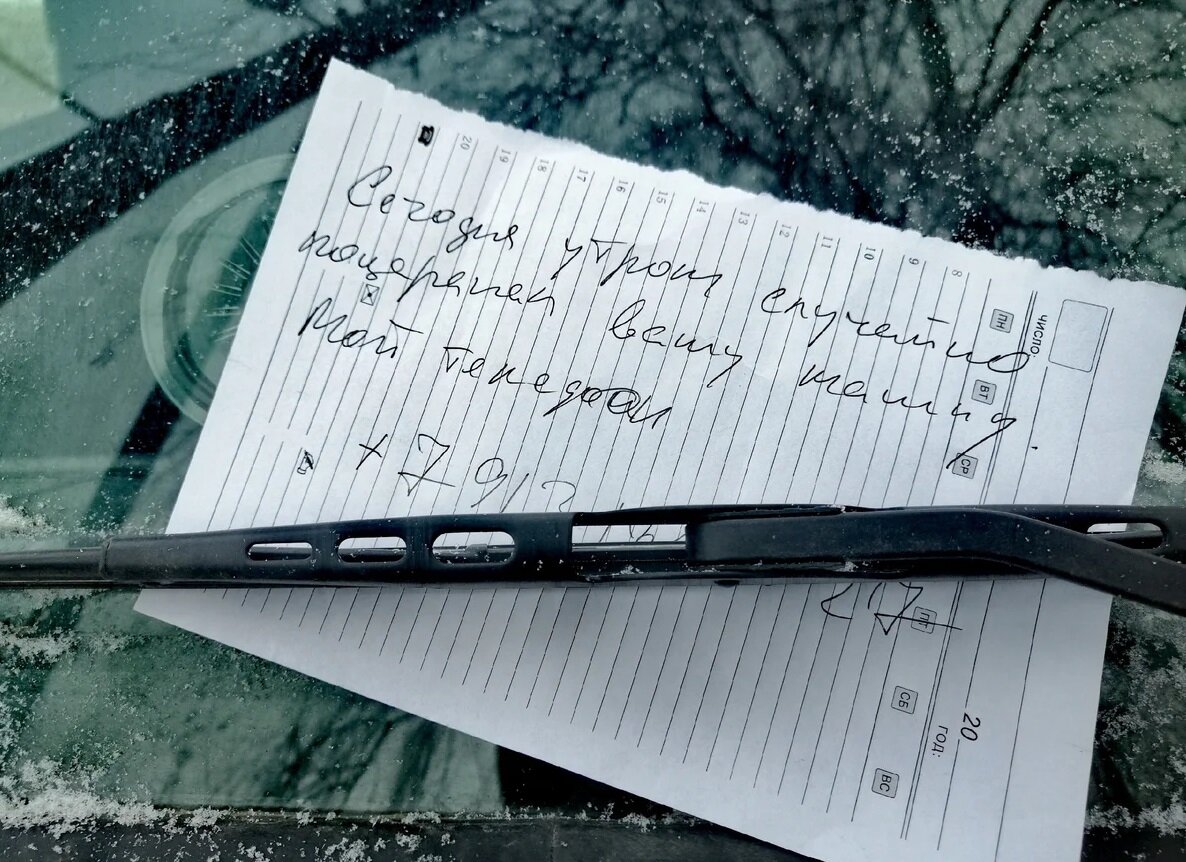 Сегодня утром случайно
поцарапал вашу машину.
Мой телефон
+7 912
27
20
19
18
17
16
15
14
13
12
11
10
9
8
ПН
ВТ
СР
ПТ
СБ
ВС
число:
20
год: